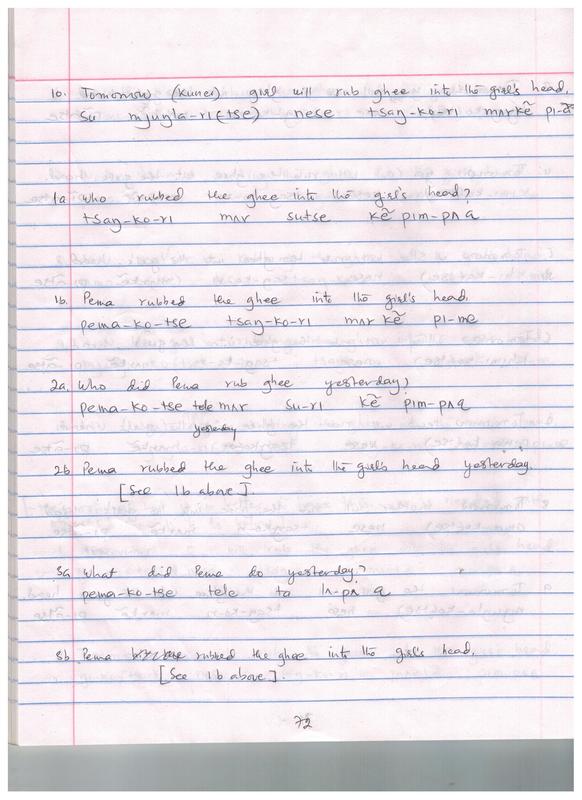 10. Tomorrow (Kunei) girl will rub ghee into the girl's head.
Su mjuŋla-rɪ(tse) nese tsaŋ-ko-rɪ mʌrkẽ pɪ-
1a Who rubbed the ghee into the girl's head?
tsaŋ-ko-rɪ mʌr sutse kẽ pɪm-pʌ a
1b. Pema rubbed the ghee into the girl's head.
pema-ko-tse tsaŋ-ko-rɪ mʌr kẽ pɪ-me
2a. Who did Pema rub ghee yesterday?
pema-ko-tse tele mʌr su-rɪ kẽ pɪm-pʌ a
yesterday
2b Pema rubbed the ghee into the girl's head yesterday.
[See 1b above].
3a What did Pema do yesterday?
pema-ko-tse tele ta lʌ-pʌ a
3b. Pema rubbed the ghee into the girl's head.
[See 1b above].
72